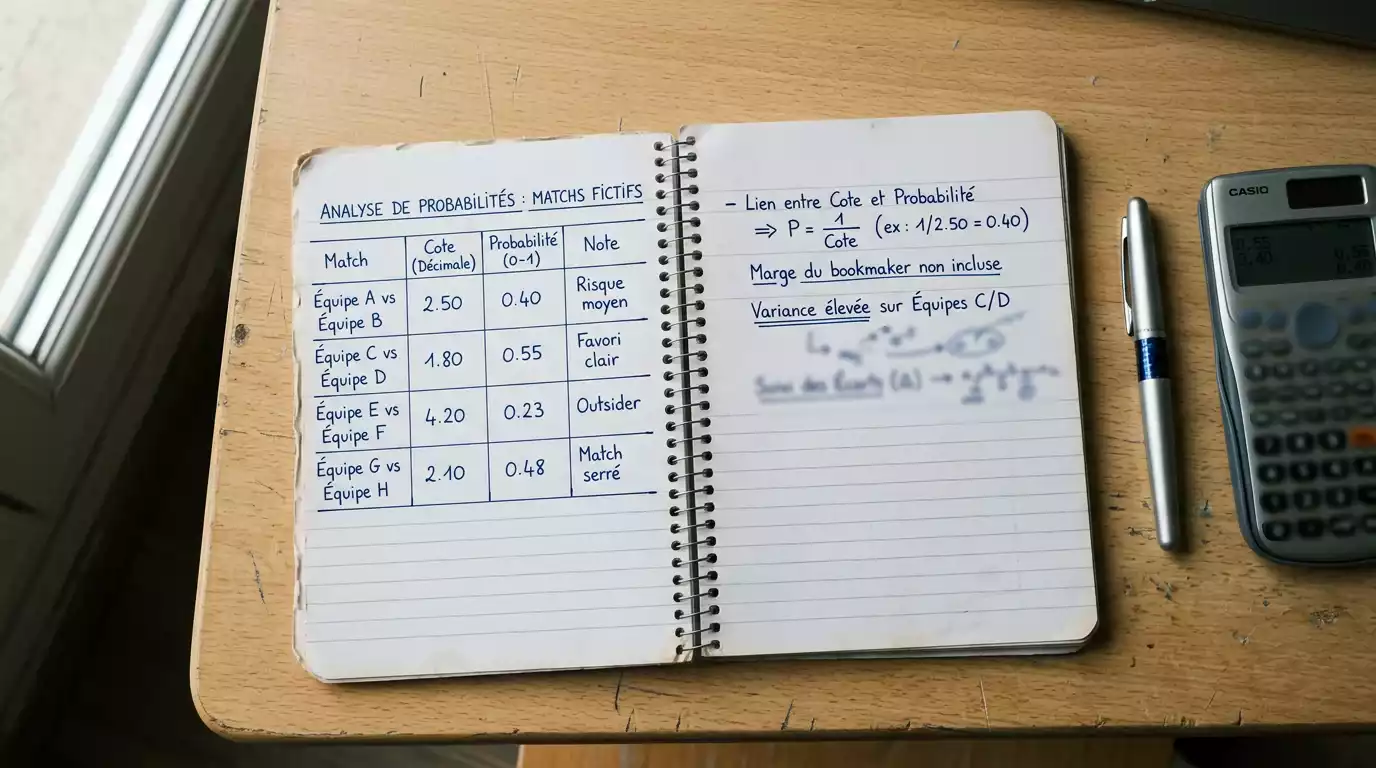 ANALYSE DE PROBABILITÉS : MATCHS FICTIFS
Match
Cote
(Décimale)
Probabilité
(0-1)
Note
Équipe A vs
Équipe B
2.50
0.40
Risque
moyen
Équipe C vs
Équipe D
1.80
0.55
Favori
clair
Équipe E vs
Équipe F
4.20
0.23
Outsider
Équipe G vs
Équipe H
2.10
0.48
Match
serré
- Lien entre Cote et Probabilité
⇒ P = 1/Cote (ex : 1/2.50 = 0.40)
Marge du bookmaker non incluse
Variance élevée sur Équipes C/D
CASIO